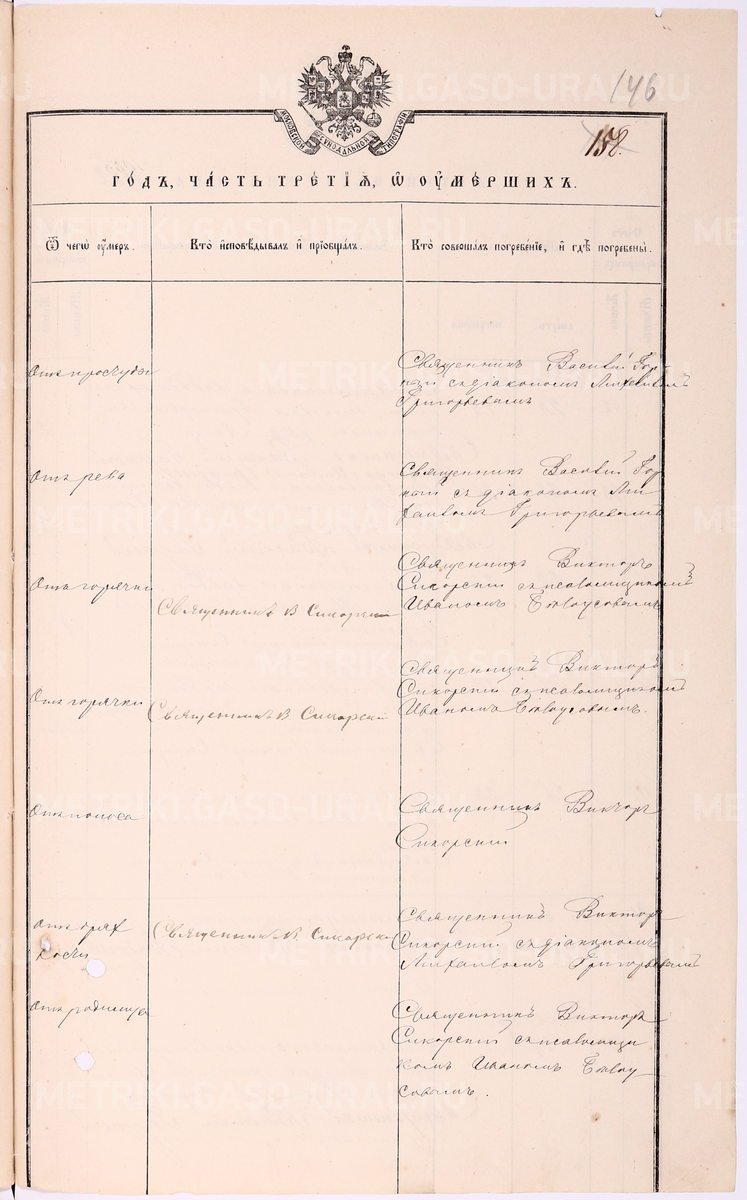 146
158.
МОСКОВСКОЙ СѴНОДАЛЬНОЙ ТИПОГРАФІИ
ГО́ДЪ, ЧА́СТЬ ТРЕ́ТІѦ, Ѡ҆ ОУ҆МЕ́РШИХЪ.
Ѿ чегѡ̀ оу҆́меръ.
Кто̀ и҆сповѣ́дывалъ и҆ прїѡбща́лъ.
Кто̀ соверша́лъ погребе́нїе, и҆ гдѣ̀ погребены̀.
Отъ простуды
Священникъ Василій Гор
кій съ діакономъ Михаиломъ
Григорьевымъ
Отъ рева
Священникъ Василій Гор
кій съ діакономъ Ми
хаиломъ Григорьевымъ
Отъ горячки
Священникъ В Сикорскій
Священникъ Викторъ
Сикорскій съ псаломщикомъ
Иваномъ
Отъ горячки
Священникъ В Сикорскій
Священникъ Викторъ
Сикорскій съ псаломщикомъ
Иваномъ
Отъ поноса
Священникъ Викторъ
Сикорскій
Отъ дрях
лости
Священникъ В. Сикорскій
Священникъ Викторъ
Сикорскій съ діакономъ
Михаиломъ Григорьевымъ
Отъ родимца
Священникъ Викторъ
Сикорскій съ псаломщи
комъ Иваномъ
METRIKI.GASO-URAL.RU